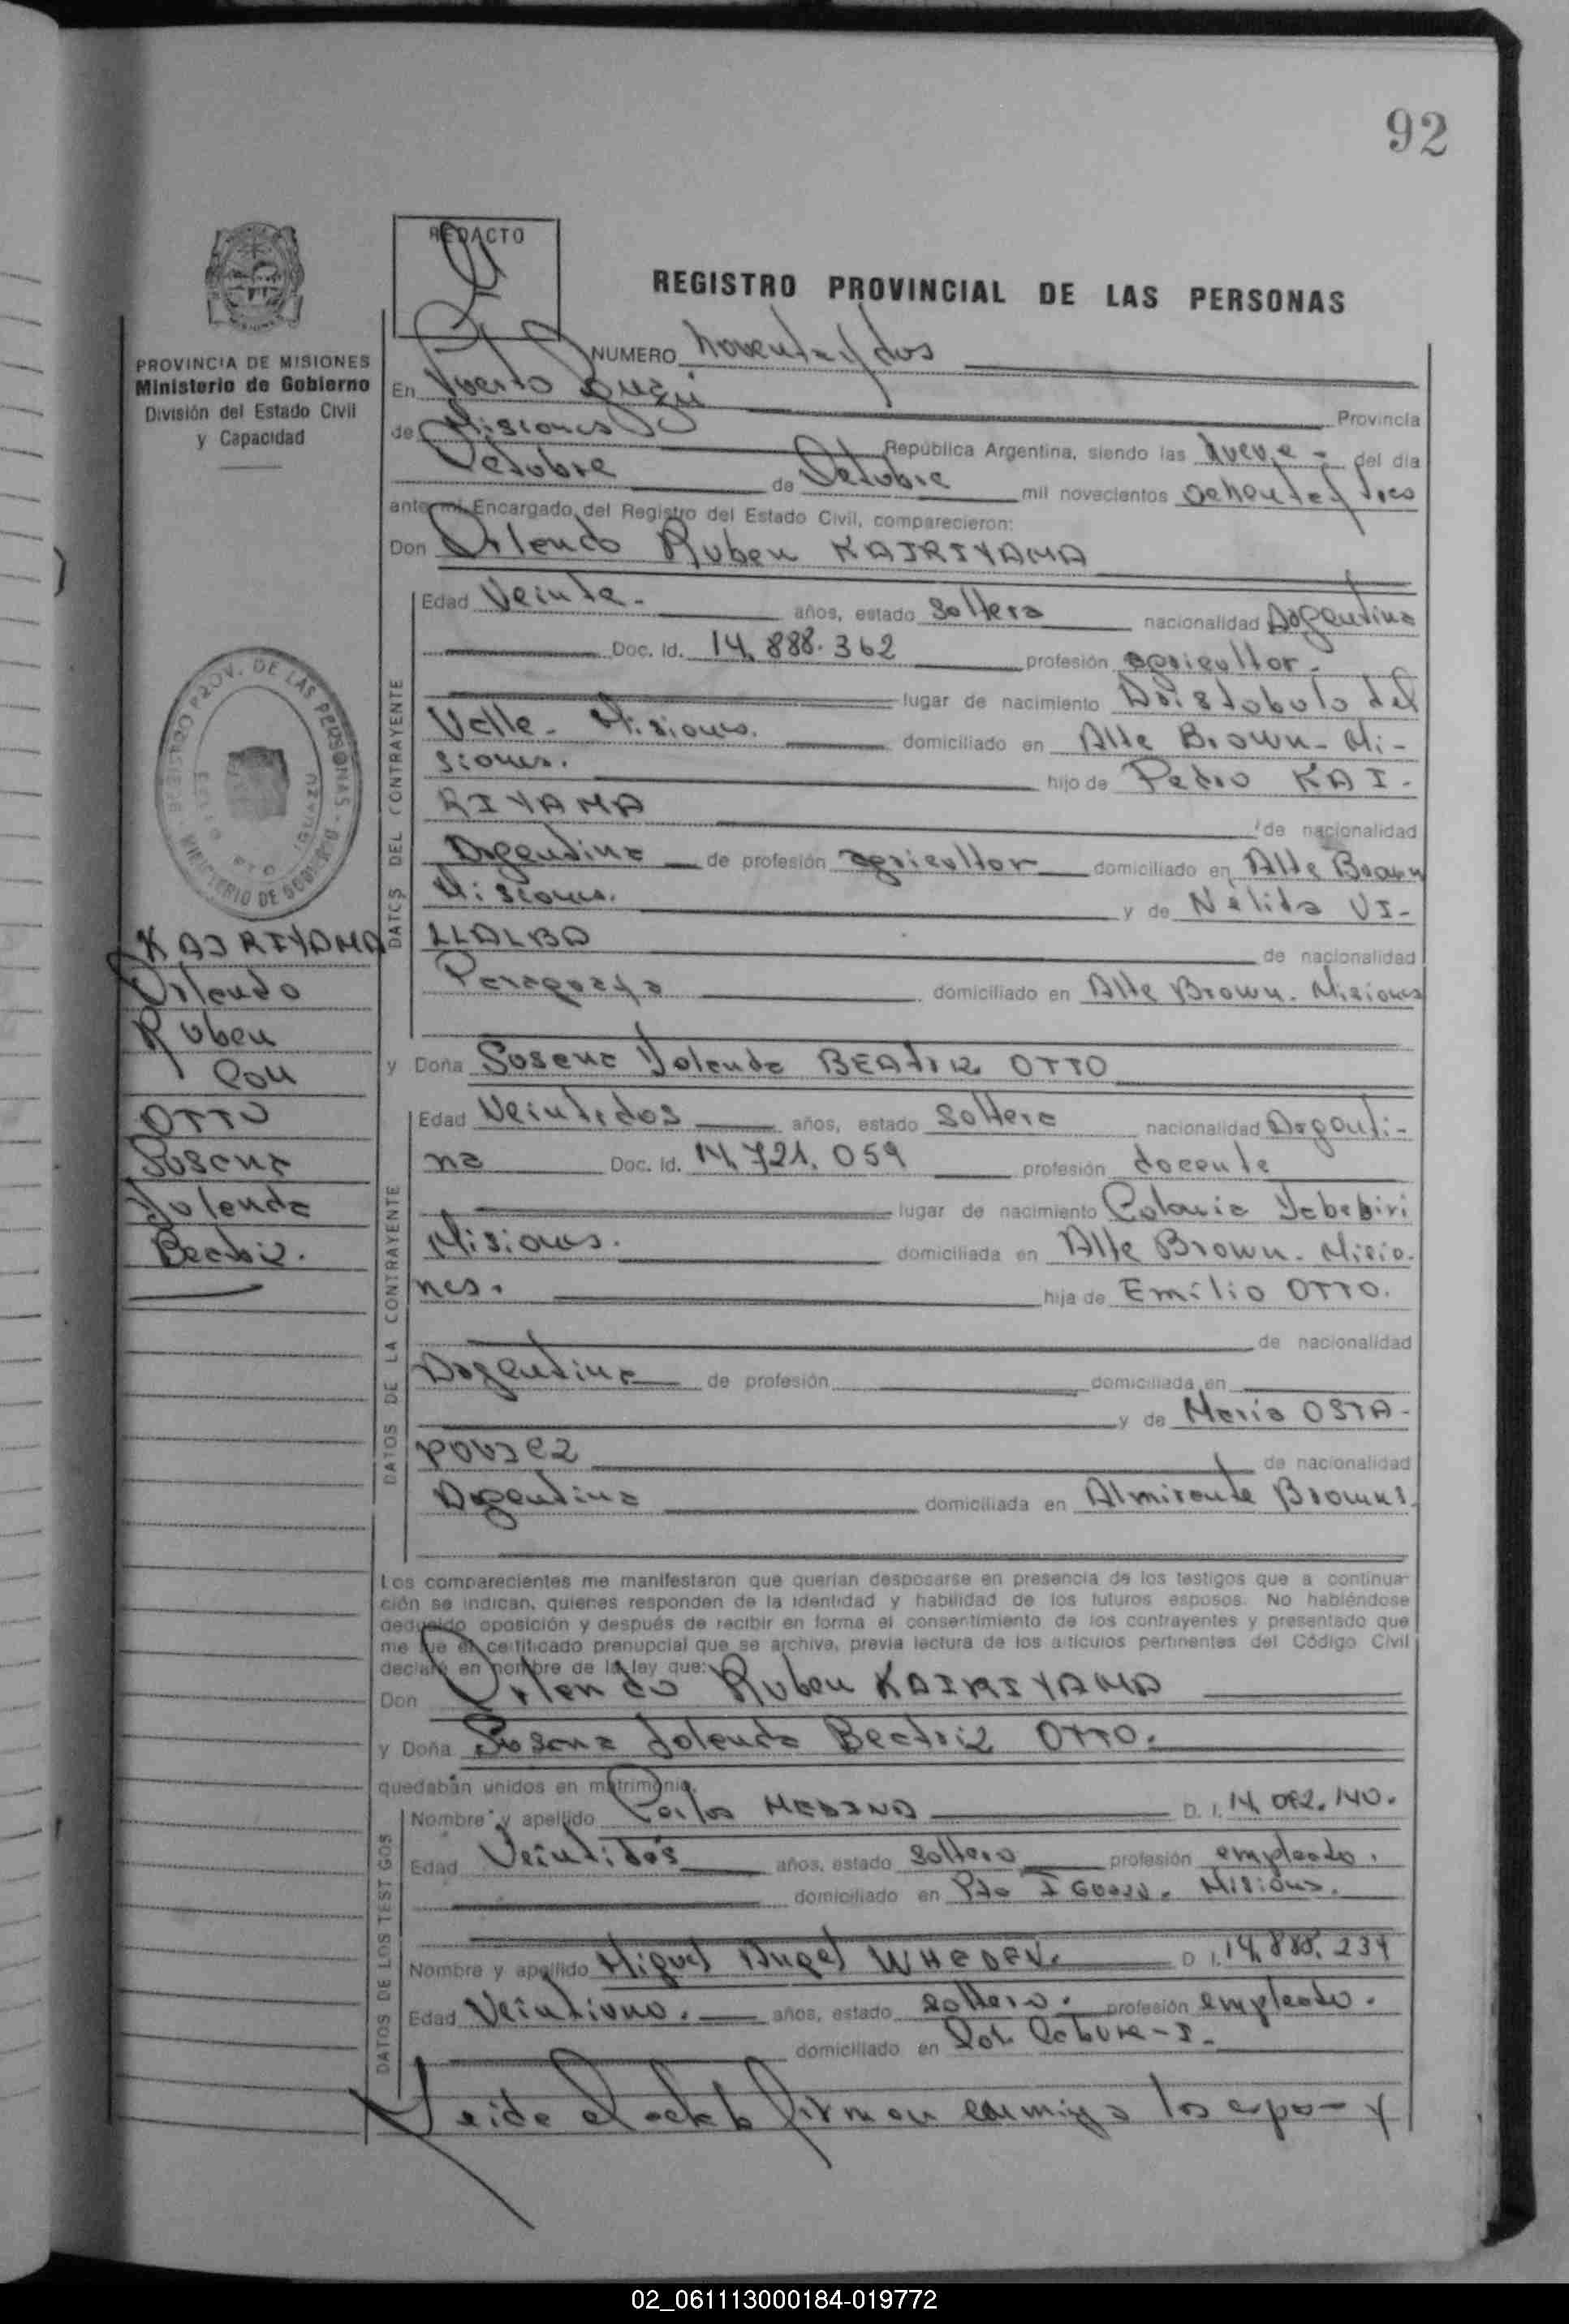 92
REDACTO
REGISTRO PROVINCIAL DE LAS PERSONAS
PROVINCIA DE MISIONES
Ministerio de Gobierno
División del Estado Civil
y Capacidad
NUMERO noventa y dos
En Puerto Provincia
de Misiones República Argentina, siendo las nueve - del día
Octubre de Octubre mil novecientos ochenta y
ante mi, Encargado del Registro del Estado Civil, comparecieron:
Don Orlando Ruben KAIRIYAMA
DATOS DEL CONTRAYENTE
Edad Veinte - años, estado Soltero nacionalidad Argentina
Doc. Id. 14.888.362 profesión agricultor -
lugar de nacimiento Aristobulo del
Valle - Misiones. domiciliado en Alte Brown - Mi-
siones. hijo de Pedro KAI-
RIYAMA de nacionalidad
Argentina de profesión agricultor domiciliado en Alte Brown
Misiones. y de Nélida VI-
LLALBA de nacionalidad
Paraguaya domiciliado en Alte Brown. Misiones
REGISTRO PROV. DE LAS PERSONAS - MINISTERIO DE GOBIERNO
PTO IGUAZU
KAIRIYAMA
Orlando
Ruben
Con
OTTO
Susana
Yolanda
Beatriz.
y Doña Susana Yolanda BEATRIZ OTTO
DATOS DE LA CONTRAYENTE
Edad Veintidos años, estado Soltera nacionalidad Argenti-
na Doc. Id. 14.721.059 profesión docente
lugar de nacimiento Colonia Yabebiri
Misiones. domiciliada en Alte Brown - Misio-
nes. hija de Emilio OTTO.
de nacionalidad
Argentina de profesión domiciliada en
y de María OSTA-
POVICZ de nacionalidad
Argentina domiciliada en Almirante
Los comparecientes me manifestaron que querían desposarse en presencia de los testigos que a continua-
ción se indican, quienes responden de la identidad y habilidad de los futuros esposos. No habiéndose
deducido oposición y después de recibir en forma el consentimiento de los contrayentes y presentado que
me fue el certificado prenupcial que se archiva, previa lectura de los artículos pertinentes del Código Civil
declaré en nombre de la ley que:
Don Orlando Ruben KAIRIYAMA
y Doña Susana Yolanda Beatriz OTTO.
quedaban unidos en matrimonio.
DATOS DE LOS TESTIGOS
Nombre y apellido Carlos MEDINA D. I. 14.082.140.
Edad Veintidós años, estado Soltero profesión empleado.
domiciliado en Pto IGUAZU. Misiones.
Nombre y apellido Miguel Angel D. I. 14.888.234
Edad Veintiuno. años, estado soltero. profesión empleado.
domiciliado en
Leida el acta firman conmigo los espo- y
02_061113000184-019772